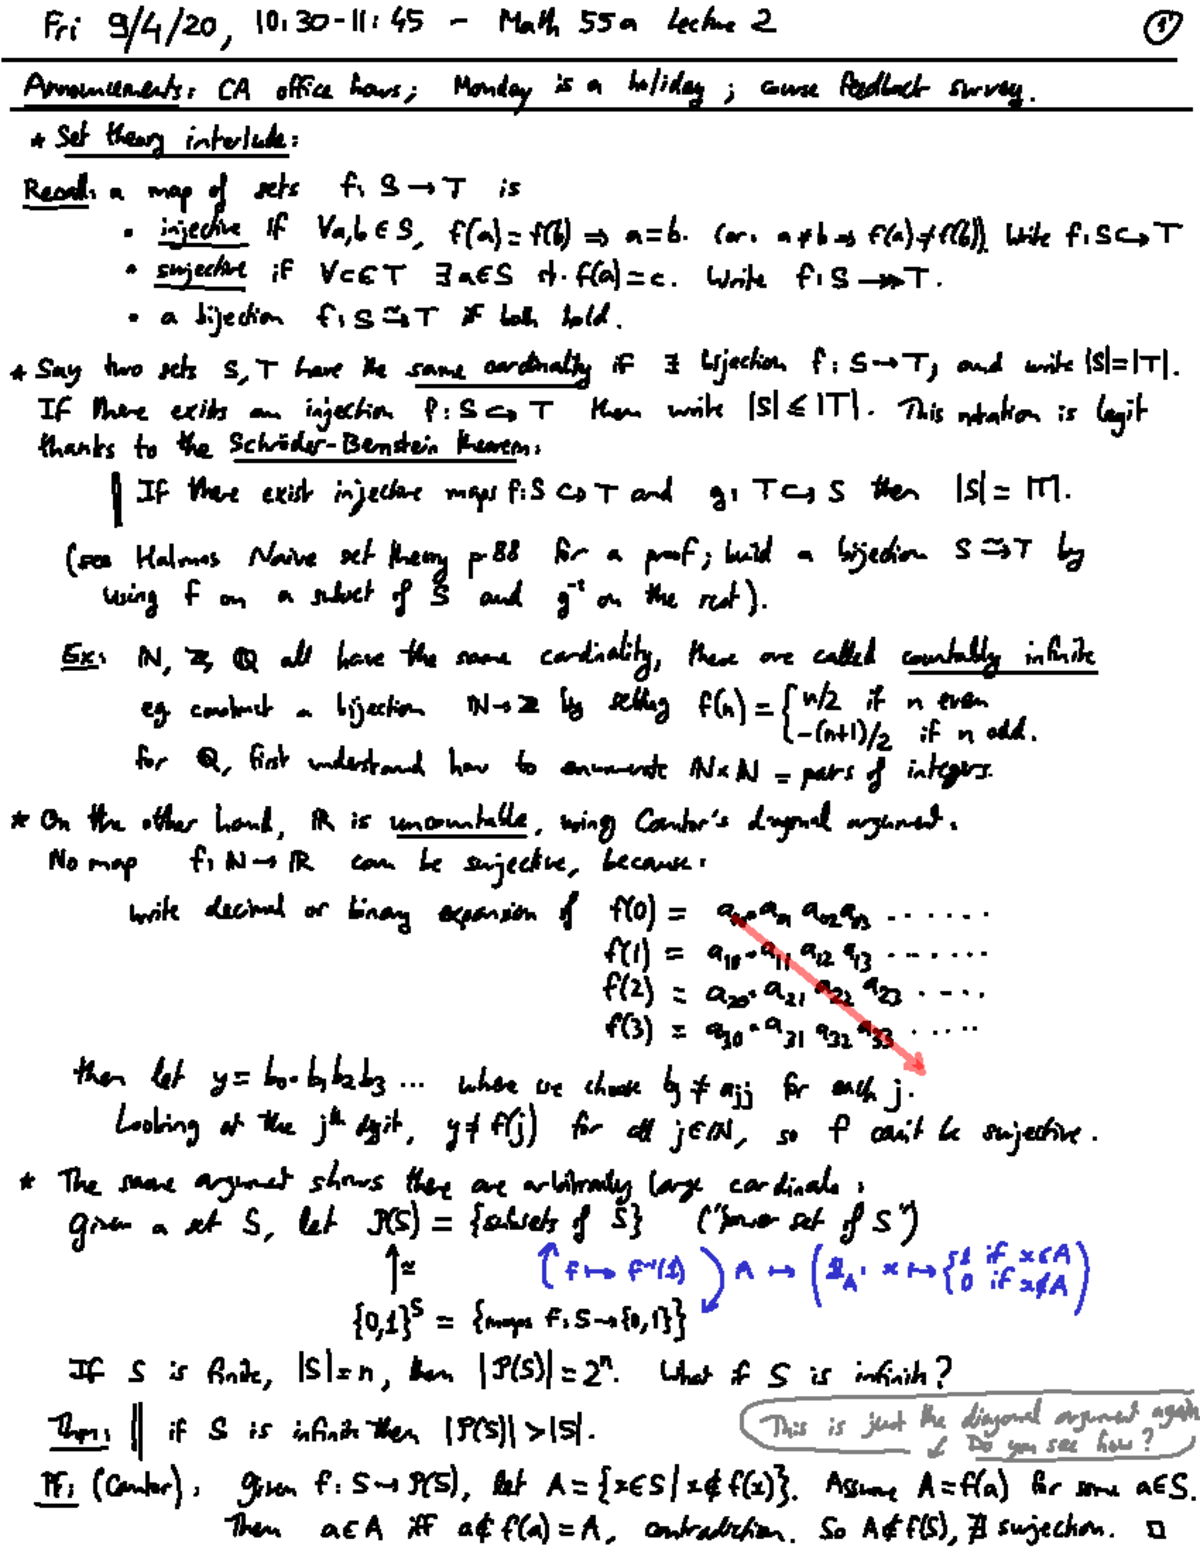 Fri 9/4/20, 10:30-11:45 - Math 55a Lecture 2 ①
Announcements: CA office hours; Monday is a holiday; course feedback survey.
* Set theory interlude:
Recall: a map of sets f: S → T is
• injective if ∀a,b ∈ S, f(a) = f(b) ⇒ a = b. (or: a ≠ b ⇒ f(a) ≠ f(b)). Write f: S ↪ T
• surjective if ∀c ∈ T ∃ a ∈ S st. f(a) = c. Write f: S ↠ T.
• a bijection f: S ≃→ T if both hold.
* Say two sets S, T have the same cardinality if ∃ bijection f: S → T; and write |S| = |T|.
If there exists an injection f: S ↪ T then write |S| ≤ |T|. This notation is legit
thanks to the Schröder-Bernstein theorem:
‖ If there exist injective maps f: S ↪ T and g: T ↪ S then |S| = |T|.
(see Halmos Naive set theory p.88 for a proof; build a bijection S ≃→ T by
using f on a subset of S and g⁻¹ on the rest).
Ex: ℕ, ℤ, ℚ all have the same cardinality, these are called countably infinite
eg. construct a bijection ℕ → ℤ by setting f(n) = { n/2 if n even
-(n+1)/2 if n odd.
for ℚ, first understand how to enumerate ℕ×ℕ = pairs of integers.
* On the other hand, ℝ is uncountable, using Cantor's diagonal argument.
No map f: ℕ → ℝ can be surjective, because:
write decimal or binary expansion of f(0) = a₀₀.a₀₁ a₀₂ a₀₃ ......
f(1) = a₁₀.a₁₁ a₁₂ a₁₃ ......
f(2) = a₂₀.a₂₁ a₂₂ a₂₃ ....
f(3) = a₃₀.a₃₁ a₃₂ a₃₃ .....
then let y = b₀.b₁b₂b₃ ... where we choose bⱼ ≠ aⱼⱼ for each j.
Looking at the jᵗʰ digit, y ≠ f(j) for all j ∈ ℕ, so f can't be surjective.
* The same argument shows there are arbitrarily large cardinals:
given a set S, let P(S) = {subsets of S} ("power set of S")
↑≃ ( f ↦ f⁻¹(1) ) A ↦ (1_A: x ↦ { 1 if x∈A
0 if x∉A )
{0,1}^S = {maps f: S → {0,1}}
If S is finite, |S| = n, then |P(S)| = 2ⁿ. What if S is infinite?
Thm: ‖ if S is infinite then |P(S)| > |S|.
This is just the diagonal argument again
↙ Do you see how?
Pf: (Cantor): given f: S → P(S), let A = {x∈S | x∉f(x)}. Assume A = f(a) for some a∈S.
Then a∈A iff a∉f(a) = A, contradiction. So A∉f(S), ∄ surjection. □